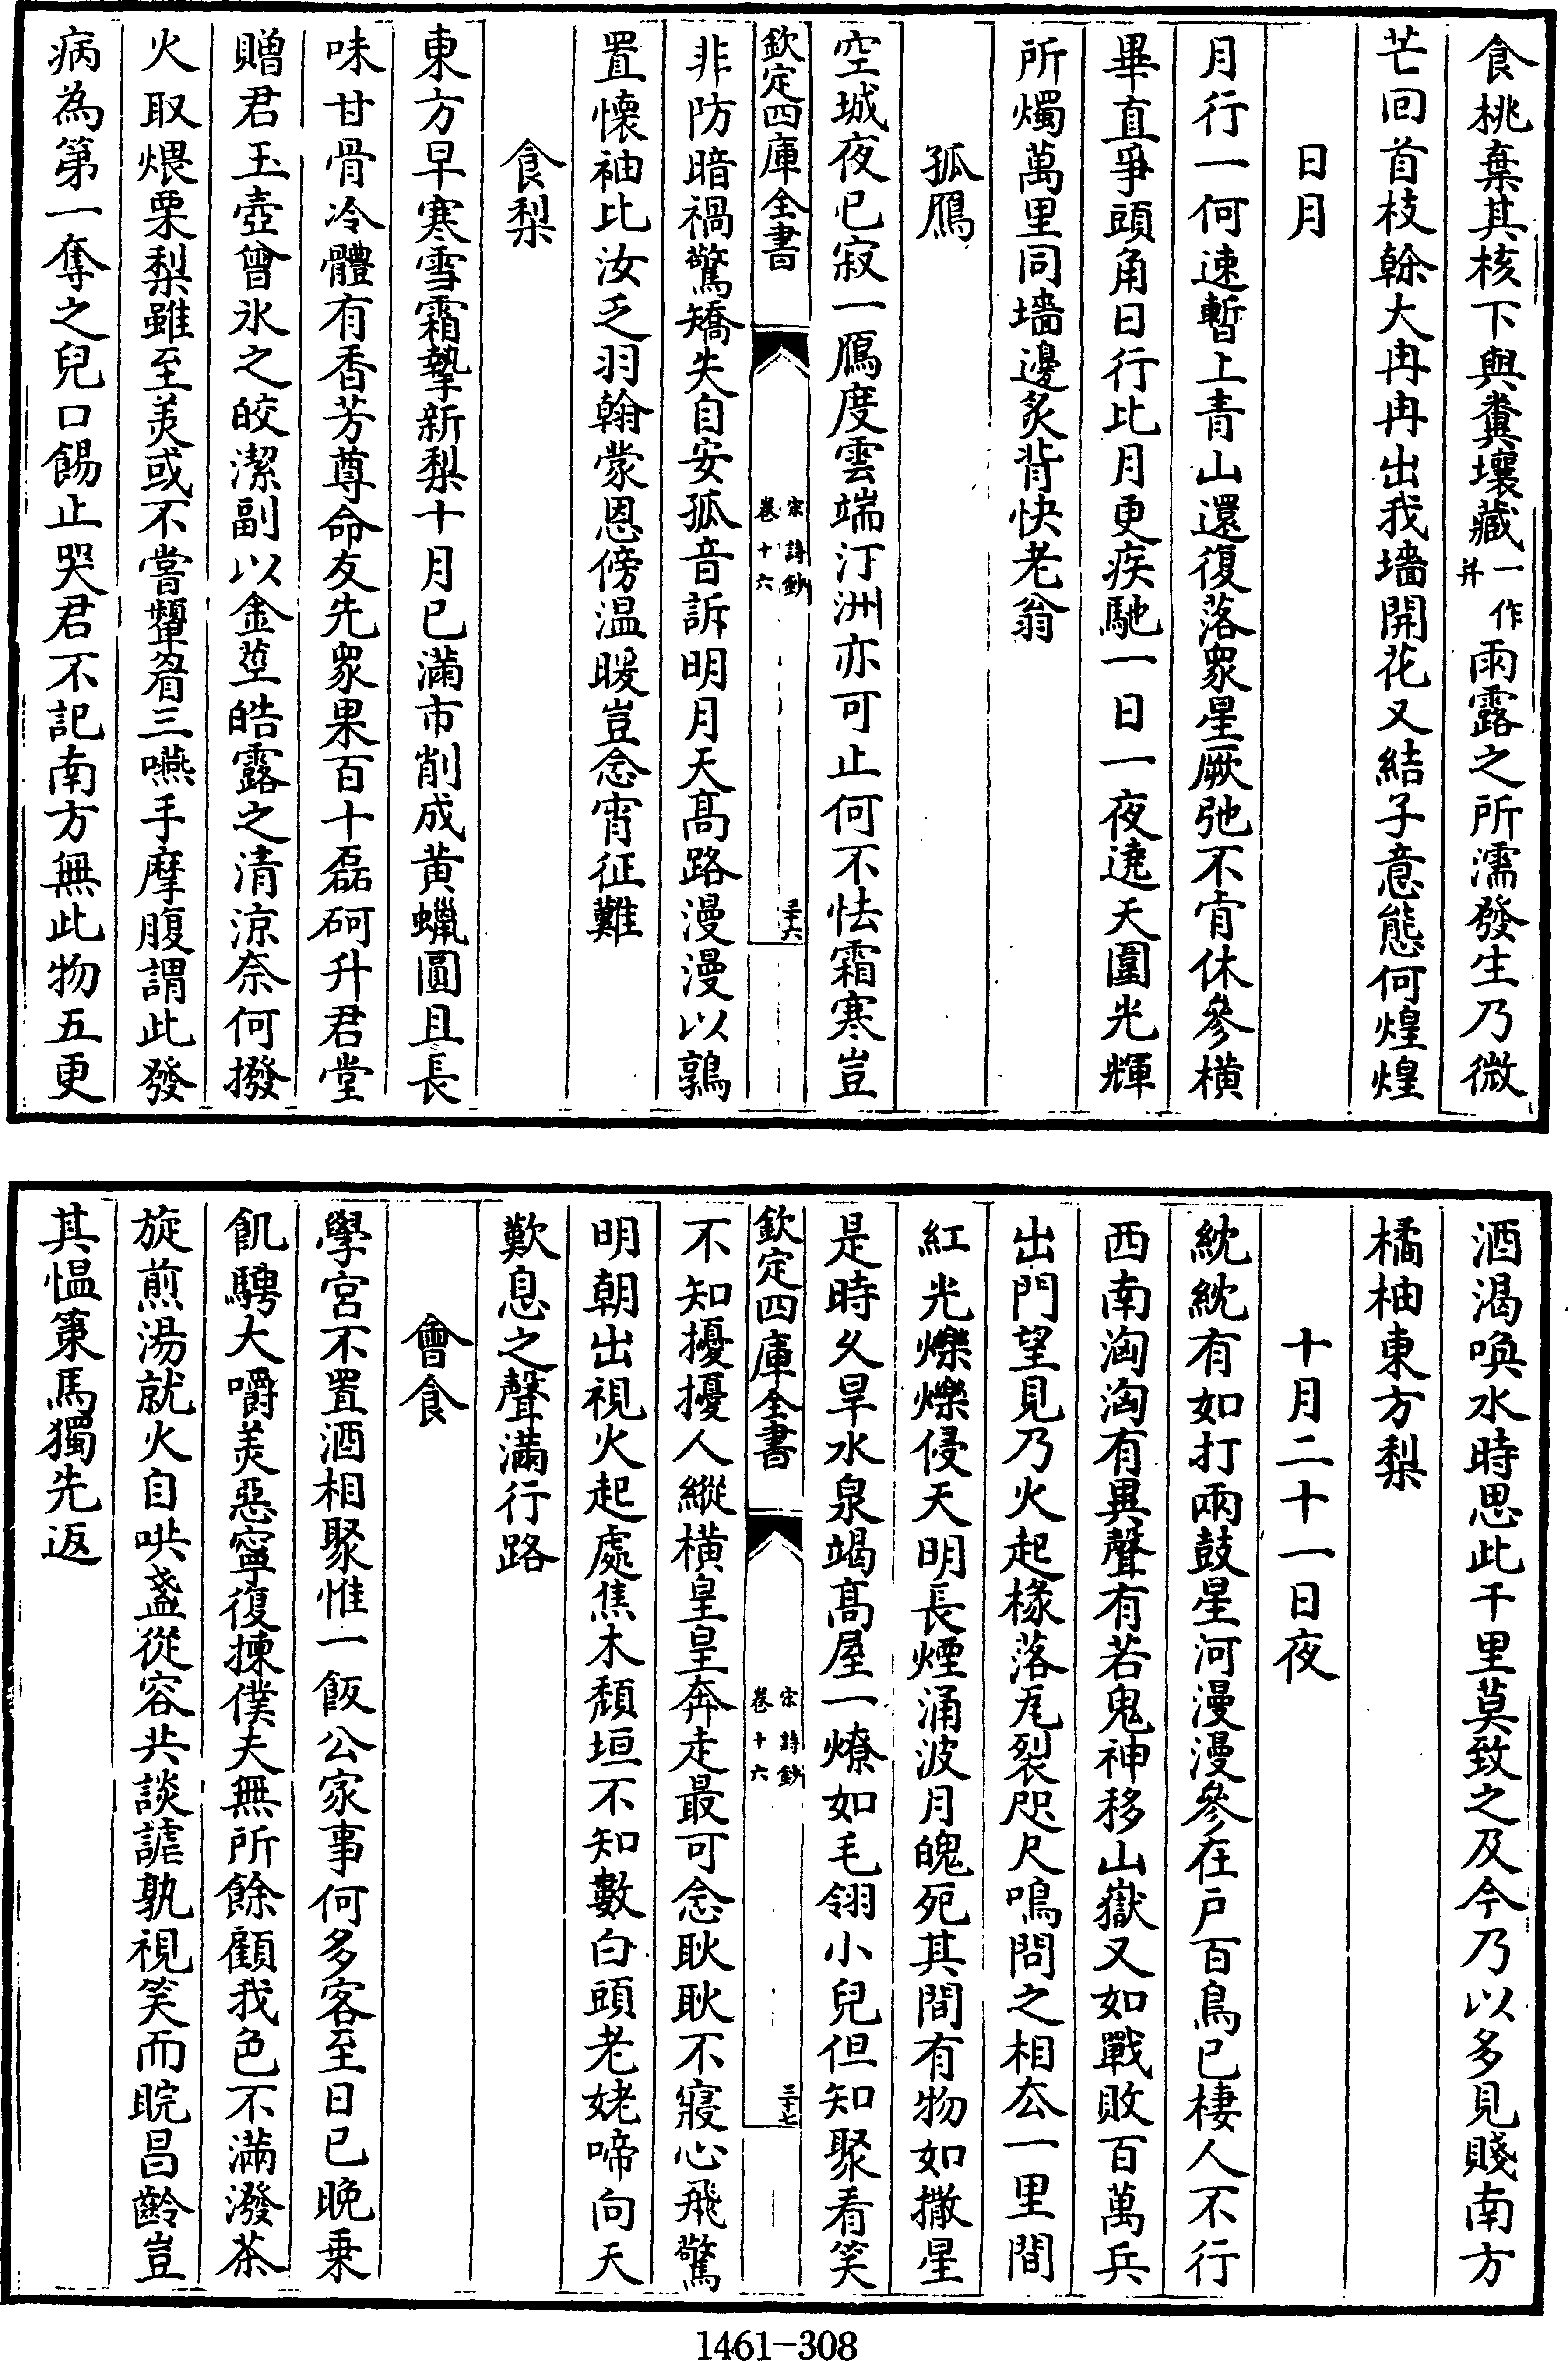 食桃棄其核下與糞壤藏一作并雨露之所濡發生乃微
芒回首枝榦大冉冉出我墻開花又結子意態何煌煌
日月
月行一何速暫上青山還復落衆星厥弛不肯休參橫
畢直爭頭角日行比月更疾馳一日一夜遶天圍光輝
所燭萬里同墻邊炙背快老翁
孤鴈
空城夜已寂一鴈度雲端汀洲亦可止何不怯霜寒豈
欽定四庫全書
宋詩鈔
卷十六
三十六
非防暗禍驚矯失自安孤音訴明月天髙路漫漫以鶉
置懐袖比汝乏羽翰蒙恩傍温暖豈念宵征難
食梨
東方早寒雪霜摯新梨十月已滿市削成黄蠟圓且長
味甘骨冷體有香芳尊命友先衆果百十磊砢升君堂
贈君玉壺曾氷之皎潔副以金莖皓露之清涼奈何撥
火取煨栗梨雖至美或不嘗顰眉三嚥手摩腹謂此發
病為第一奪之兒口餳止哭君不記南方無此物五更
酒渇喚水時思此千里莫致之及今乃以多見賤南方
橘柚東方梨
十月二十一日夜
紞紞有如打兩鼓星河漫漫參在戸百鳥已棲人不行
西南洶洶有異聲有若鬼神移山嶽又如戰敗百萬兵
出門望見乃火起椽落瓦裂咫尺鳴問之相去一里間
紅光爍爍侵天明長煙涌波月魄死其間有物如撒星
是時久旱水泉竭髙屋一燎如毛翎小兒但知聚看笑
欽定四庫全書
宋詩鈔
卷十六
三十七
不知擾擾人縱橫皇皇奔走最可念耿耿不寢心飛驚
明朝出視火起處焦木頽垣不知數白頭老姥啼向天
歎息之聲滿行路
會食
學宮不置酒相聚惟一飯公家事何多客至日已晚乗
飢騁大嚼美惡寧復揀僕夫無所餘顧我色不滿潑茶
旋煎湯就火自哄盞從容共談謔孰視笑而睆昌齡豈
其愠策馬獨先返
1461-308